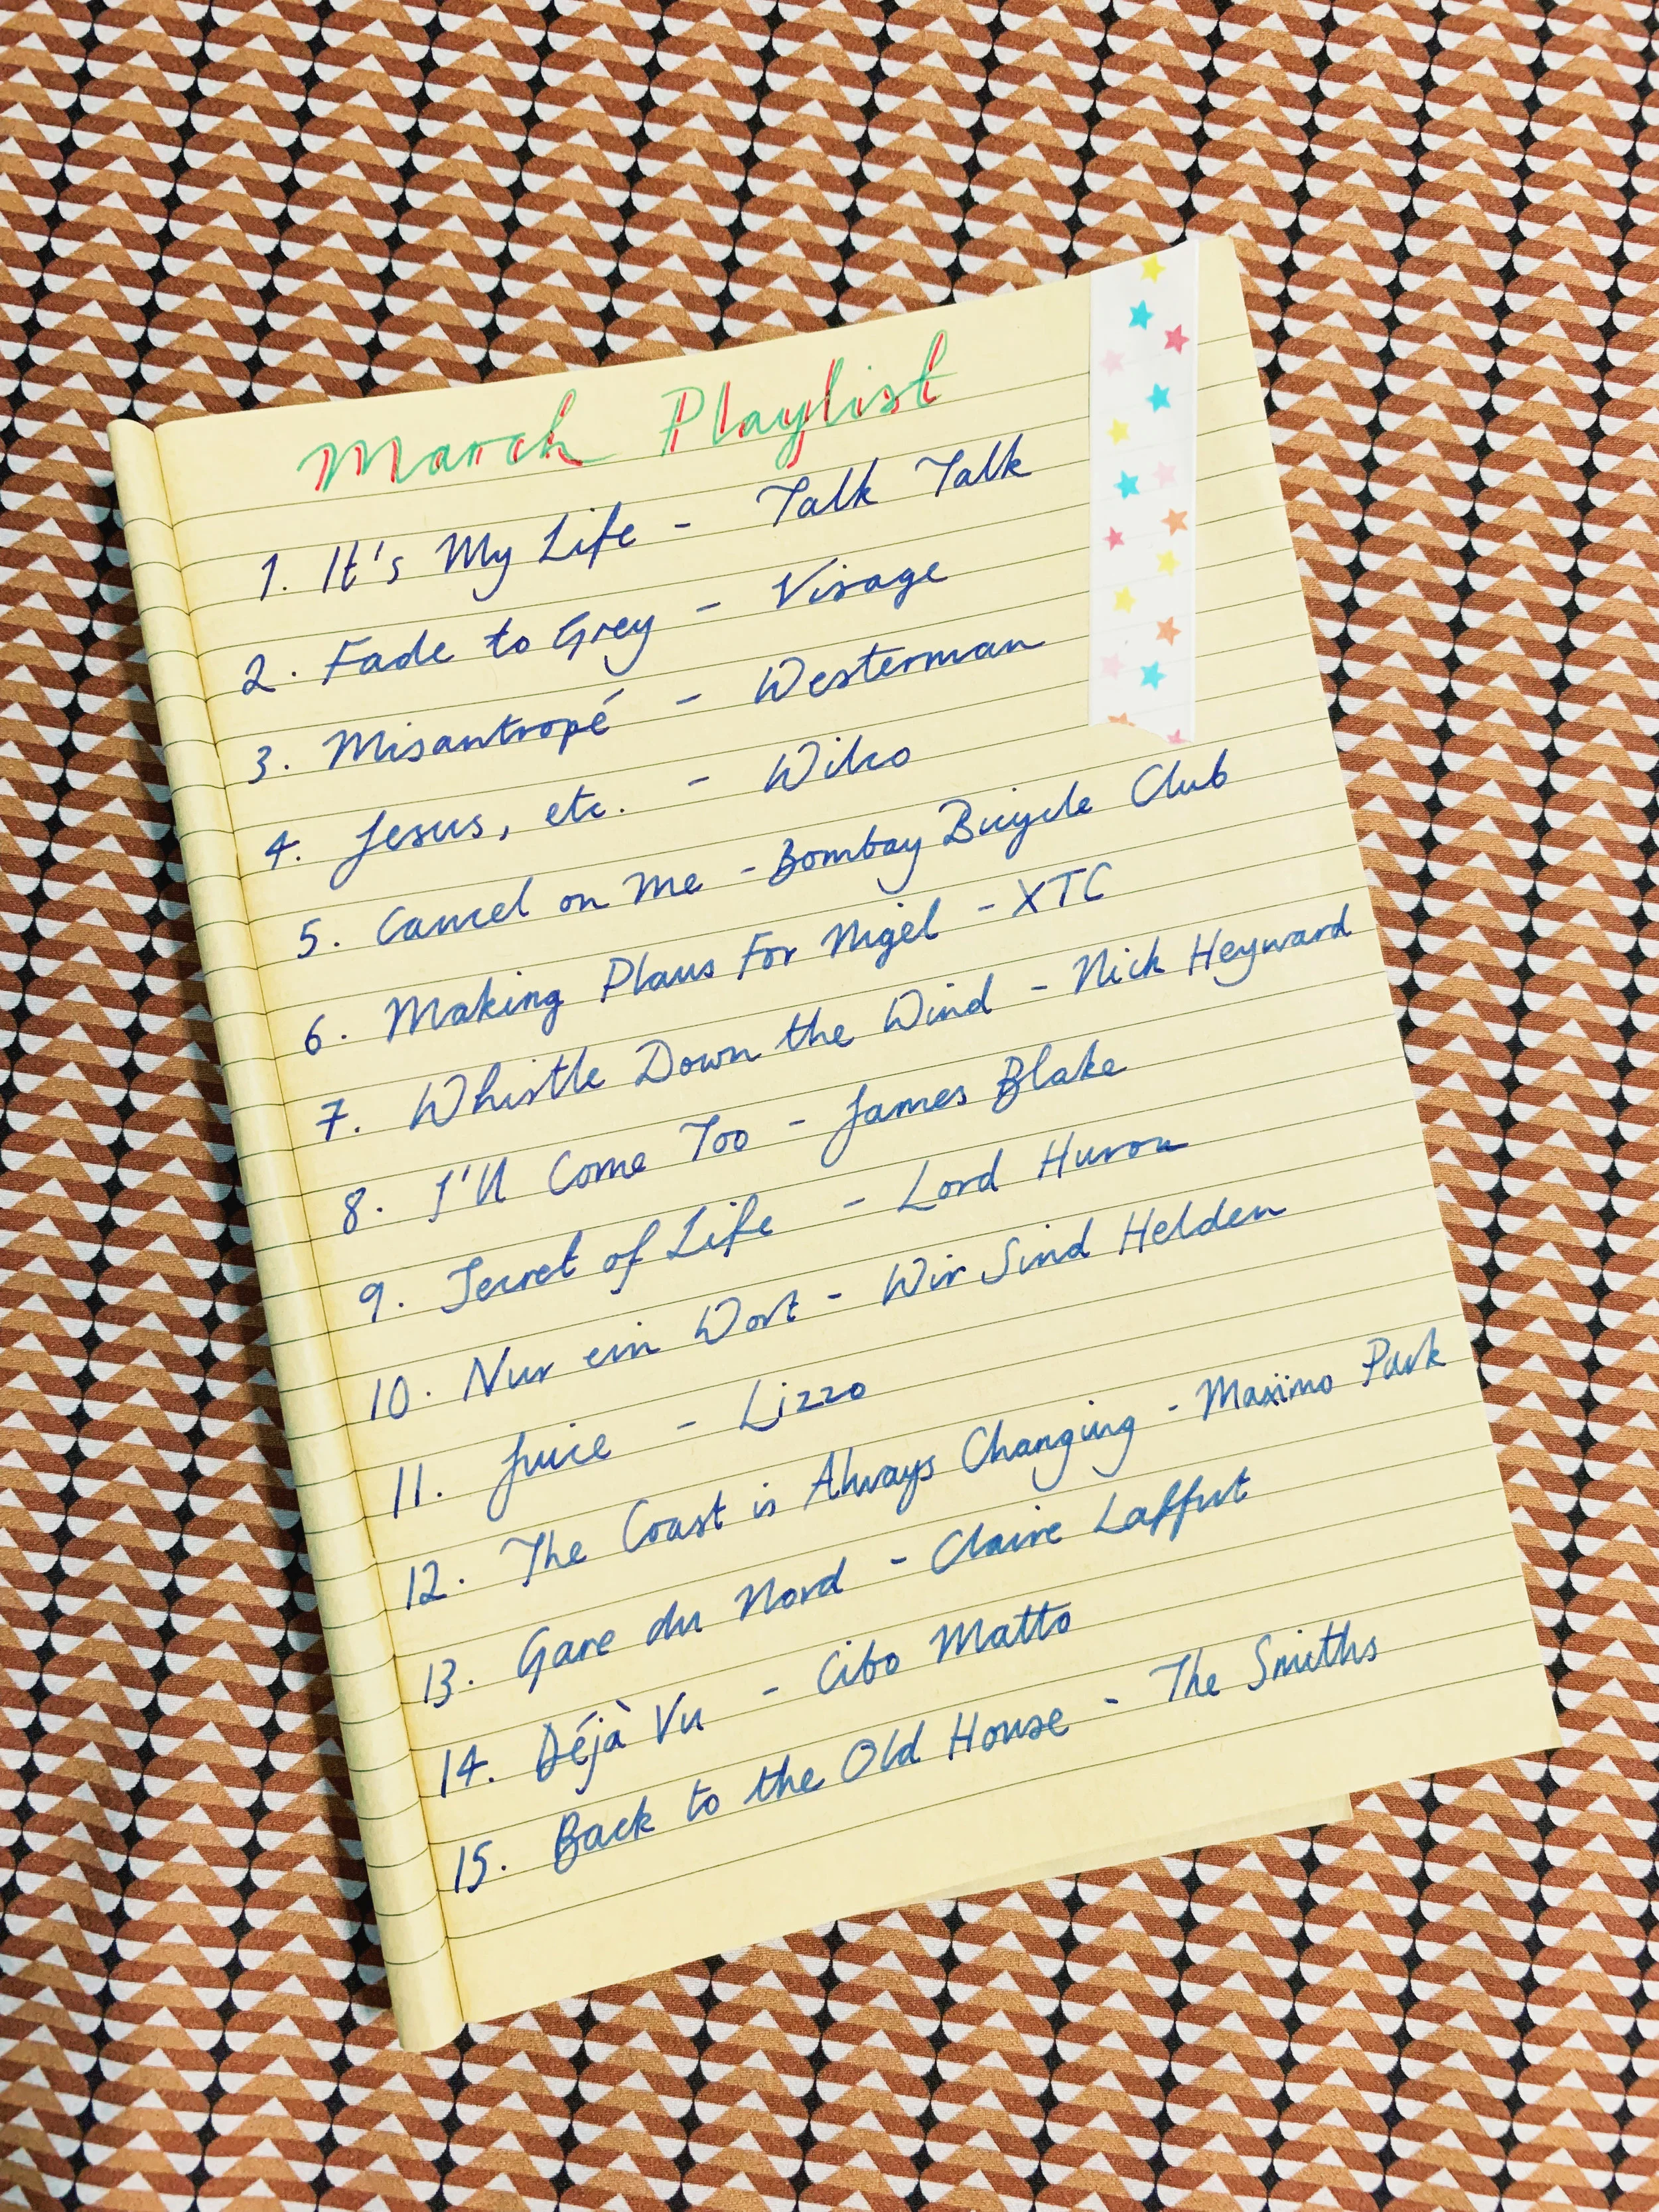 March Playlist
1. It's My Life - Talk Talk
2. Fade to Grey - Visage
3. Misantropé - Westerman
4. Jesus, etc. - Wilco
5. Cancel on Me - Bombay Bicycle Club
6. Making Plans For Nigel - XTC
7. Whistle Down the Wind - Nick Heyward
8. I'll Come Too - James Blake
9. Secret of Life - Lord Huron
10. Nur ein Wort - Wir Sind Helden
11. Juice - Lizzo
12. The Coast is Always Changing - Maxïmo Park
13. Gare du Nord - Claire Laffut
14. Déjà Vu - Cibo Matto
15. Back to the Old House - The Smiths